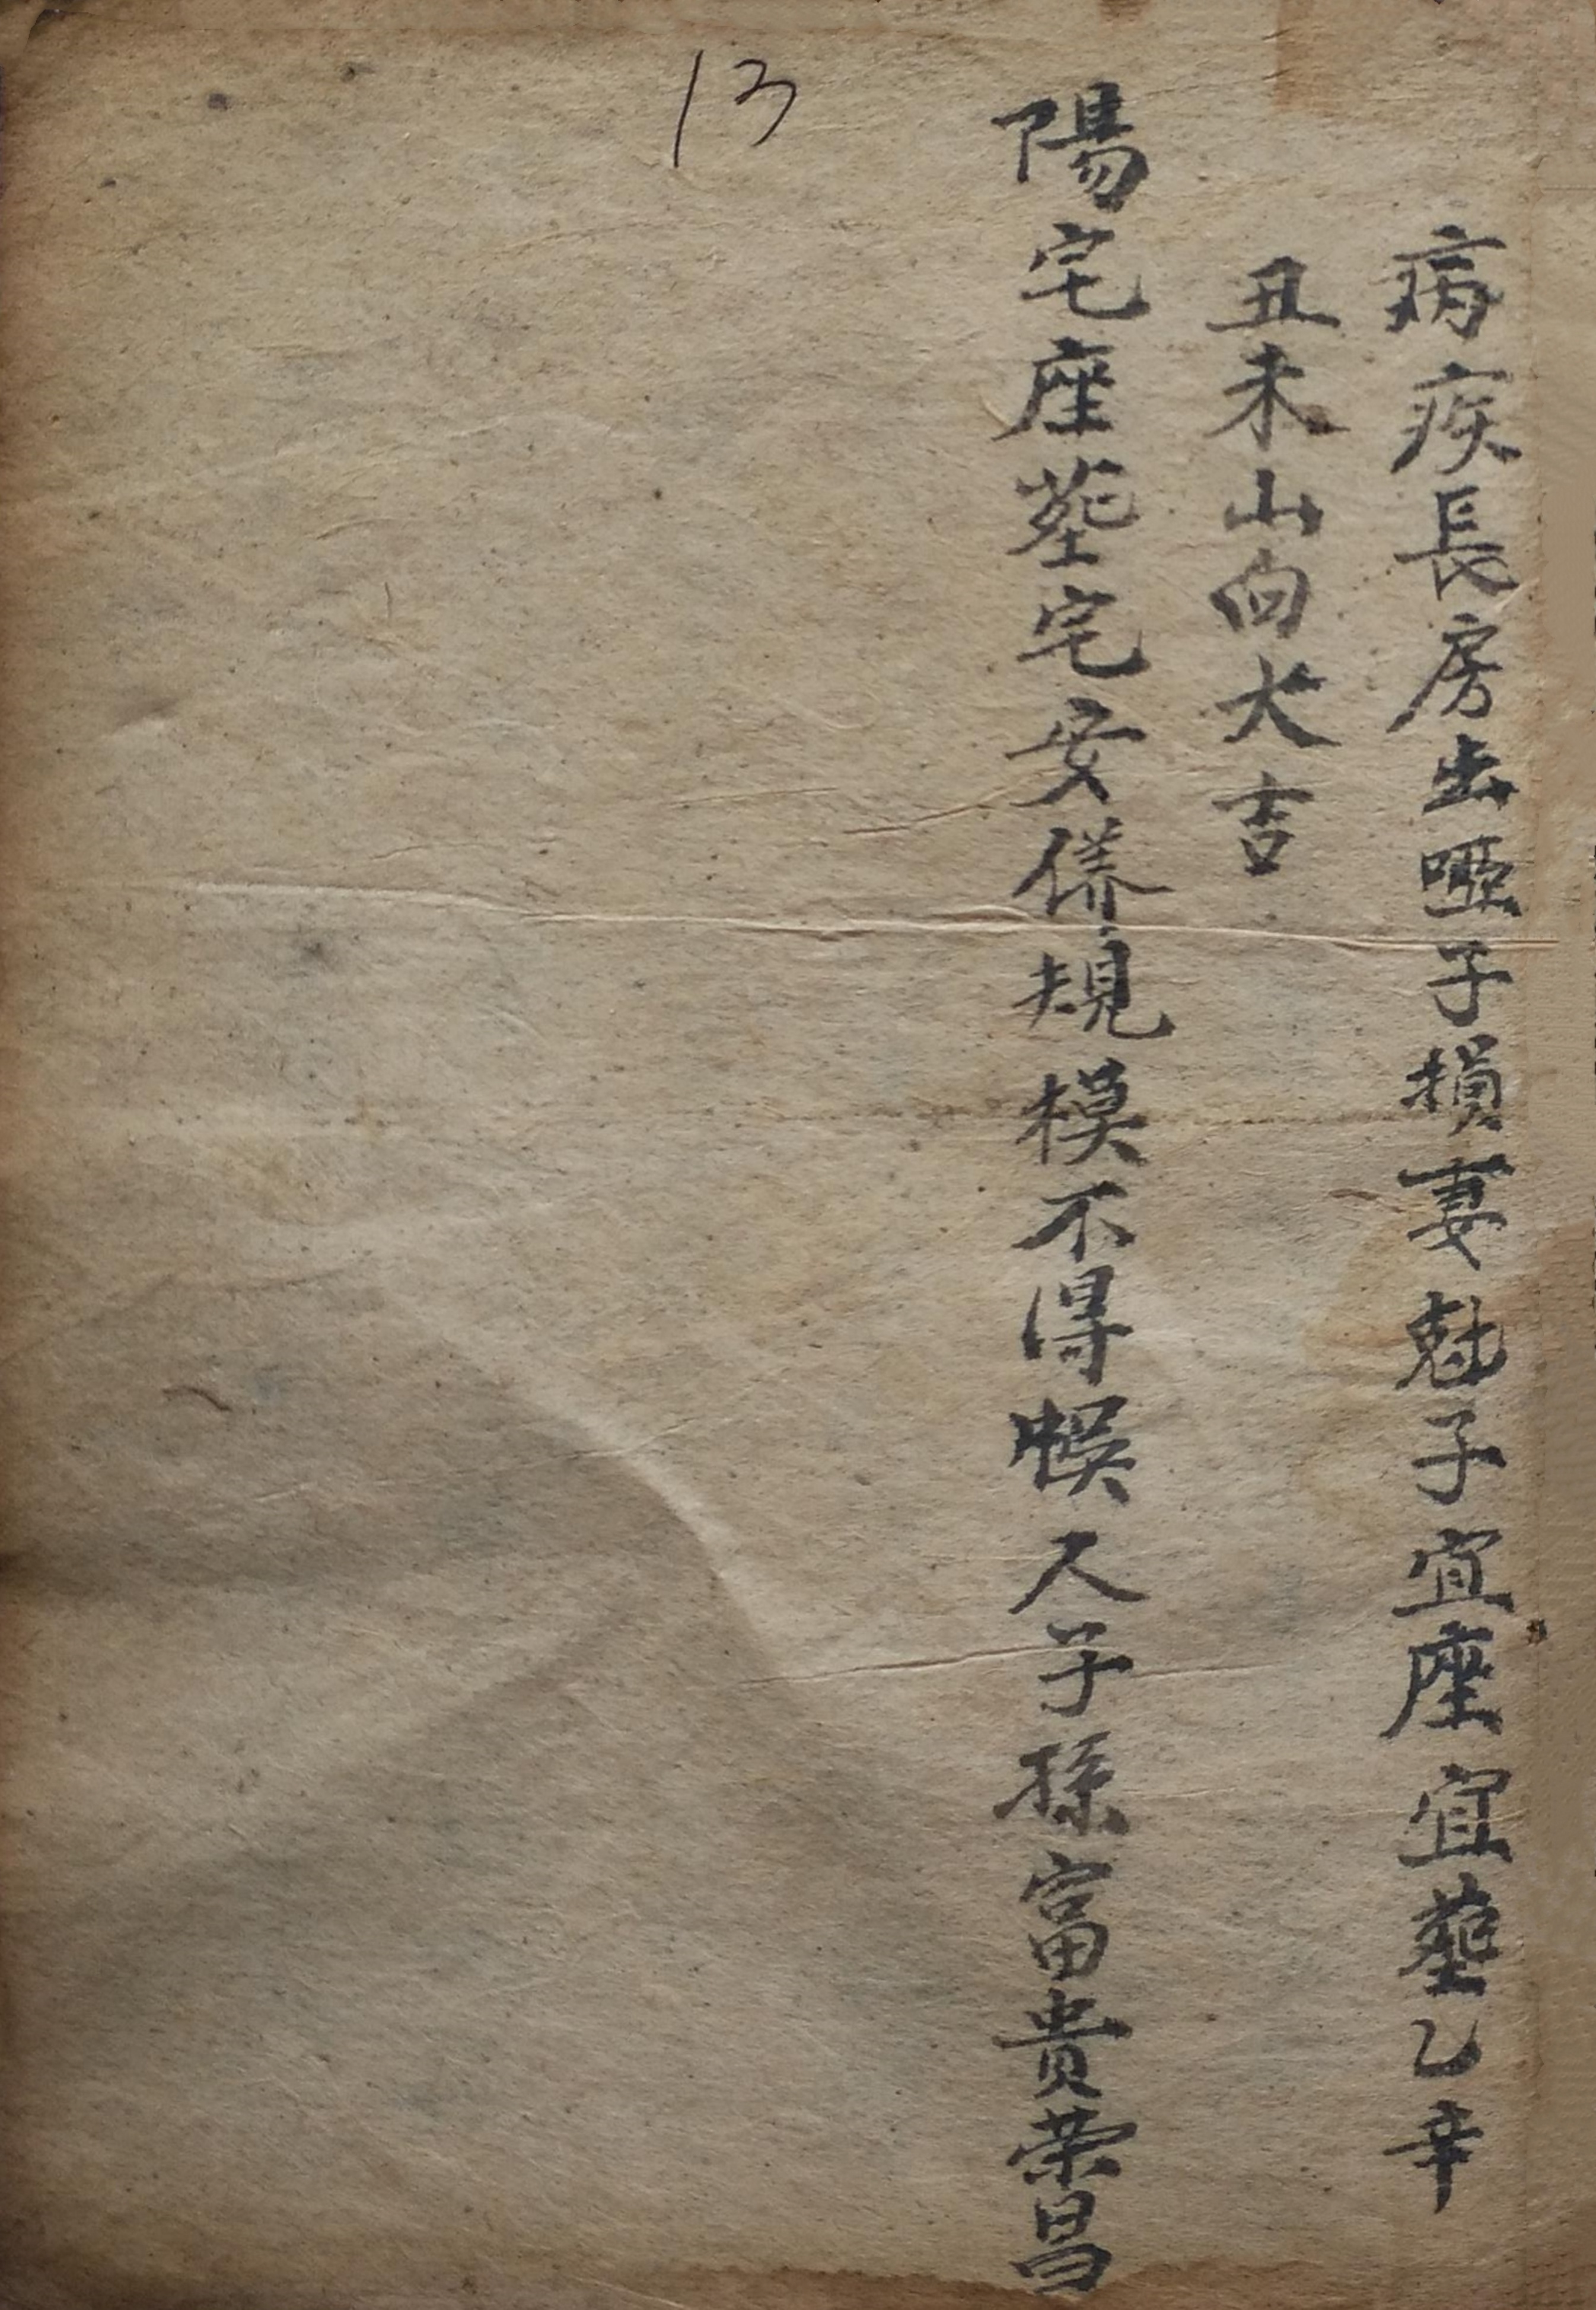 13
病疾長房出啞子損妻尅子宜座宜塟乙辛
丑未山向大吉
陽宅座塟宅安僐規模不得悞人子孫富貴荣昌